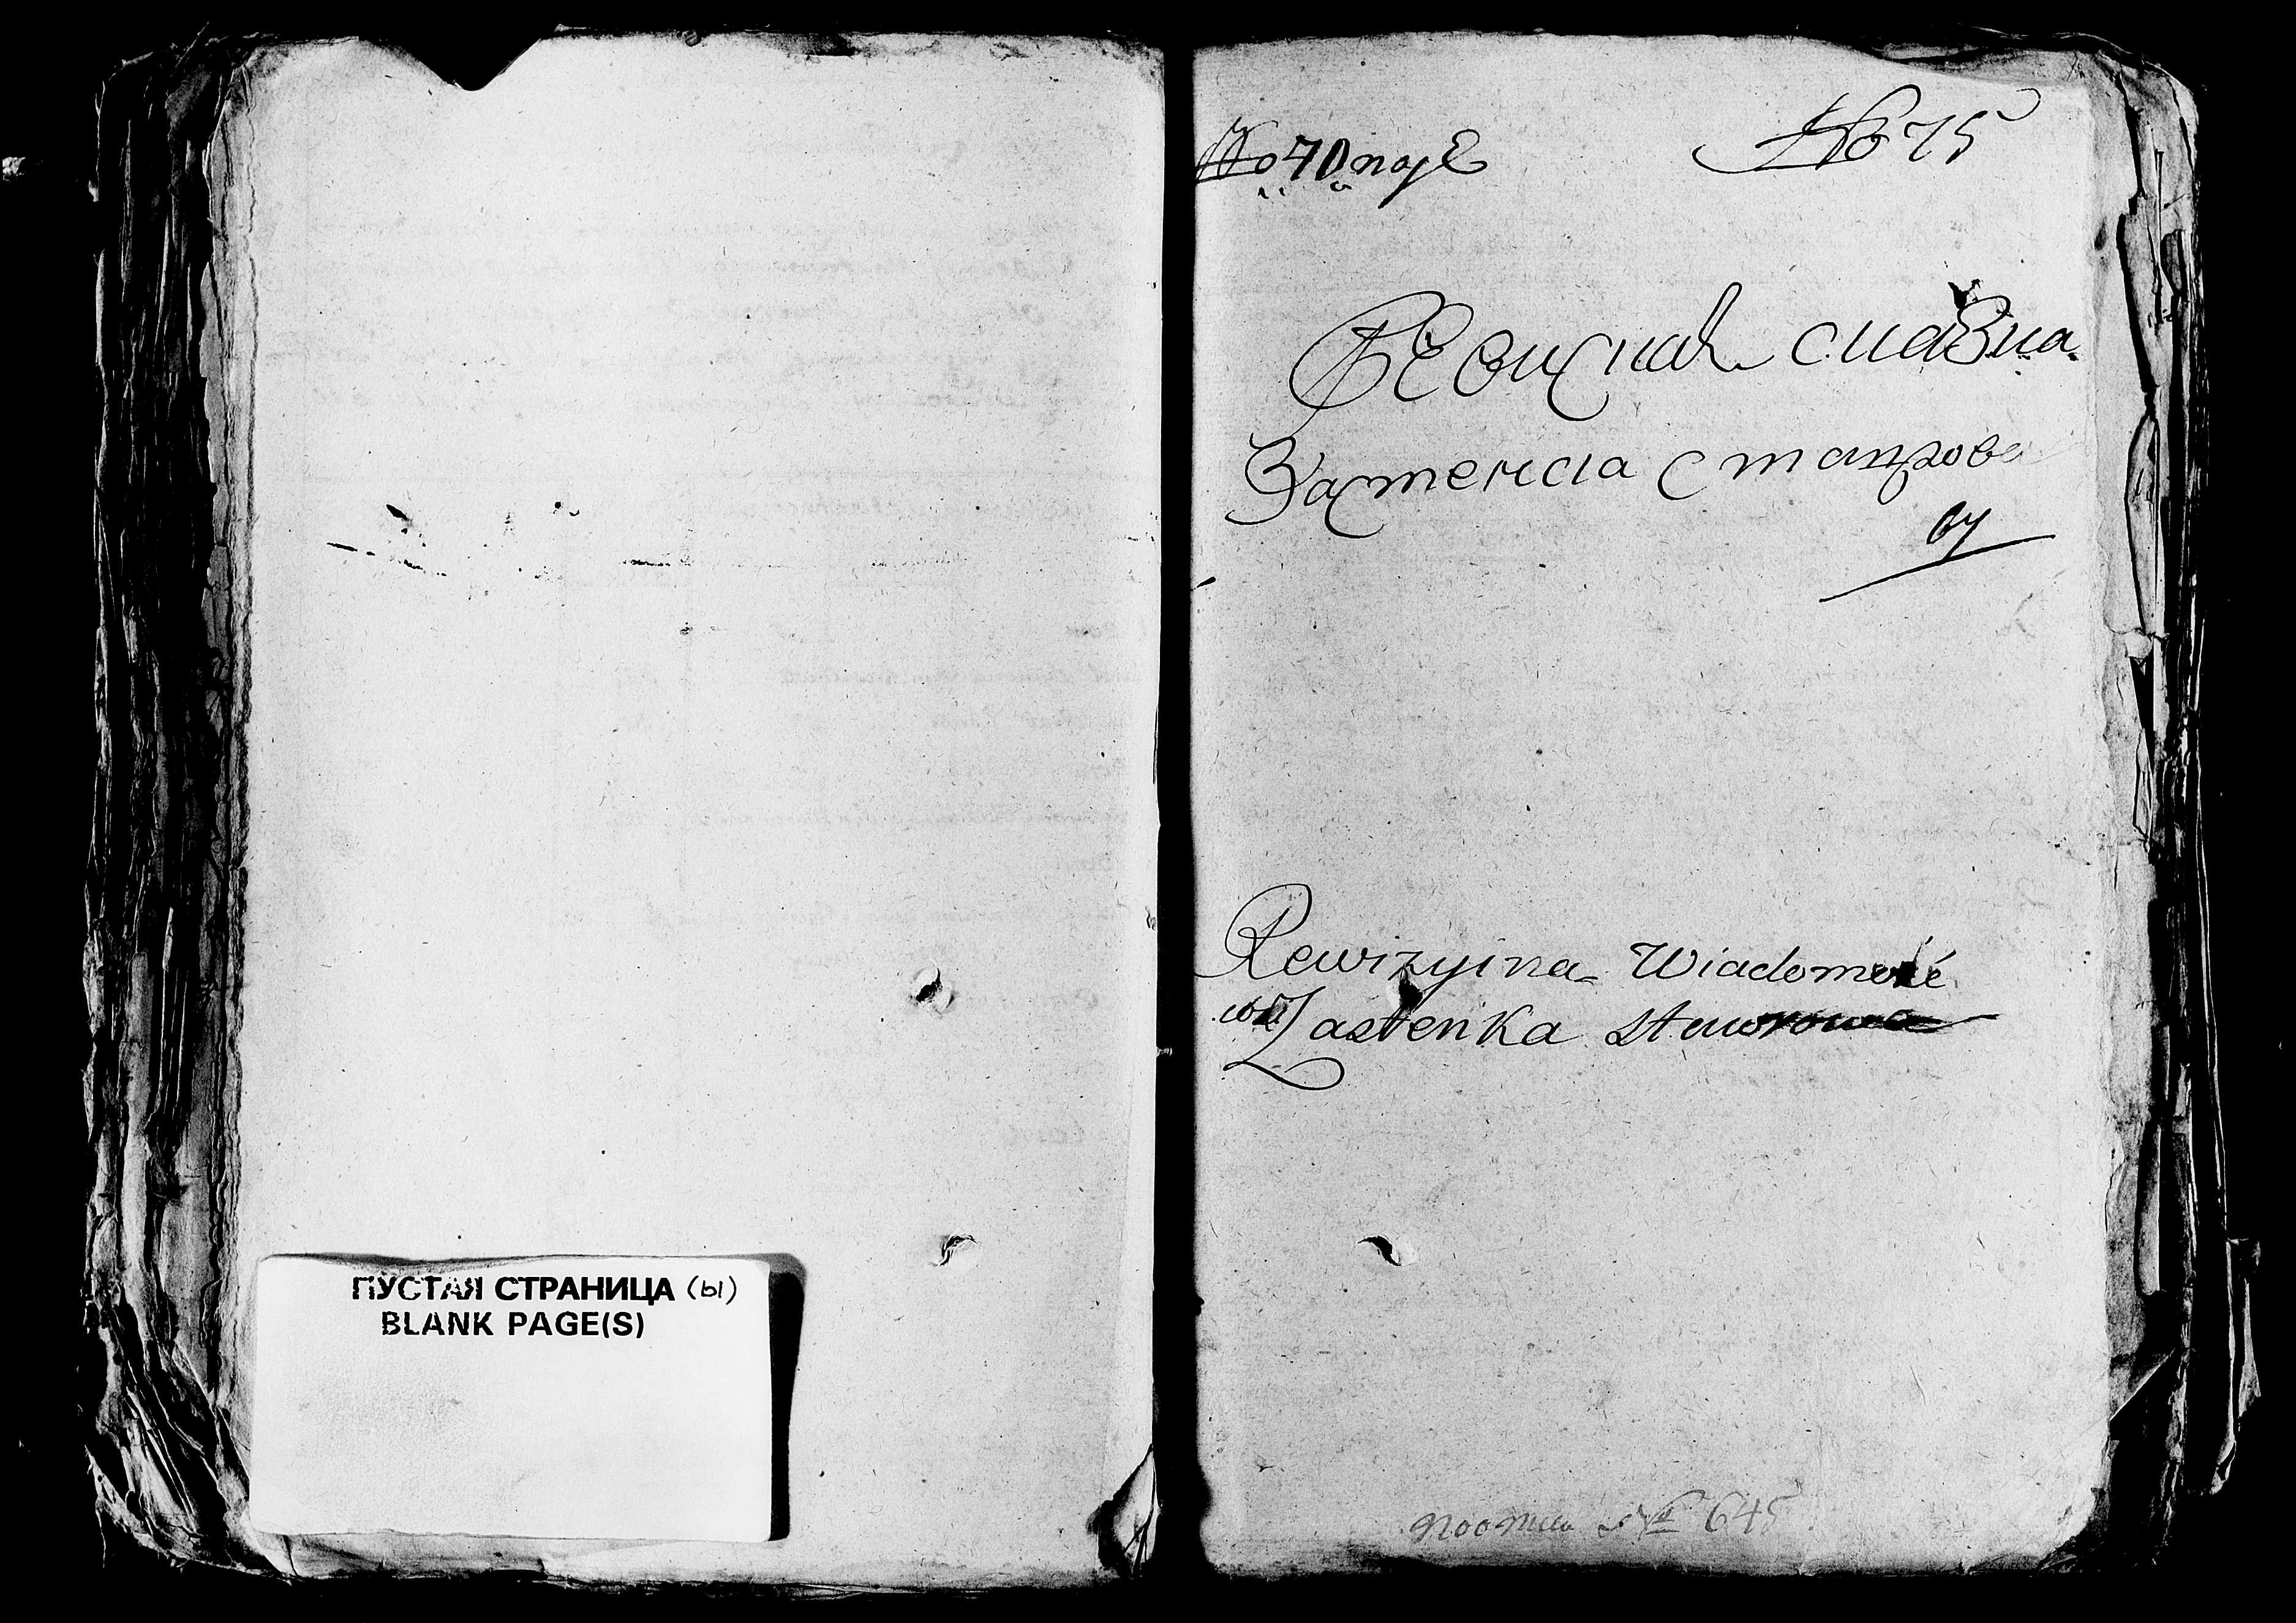 ПУСТАЯ СТРАНИЦА (ы)
BLANK PAGE(S)
№ 75
№ 70
Ревиская скаска
Застенка Ставрова
Rewizyina Wiadomość
Zastenka Stawrowa
№ 645